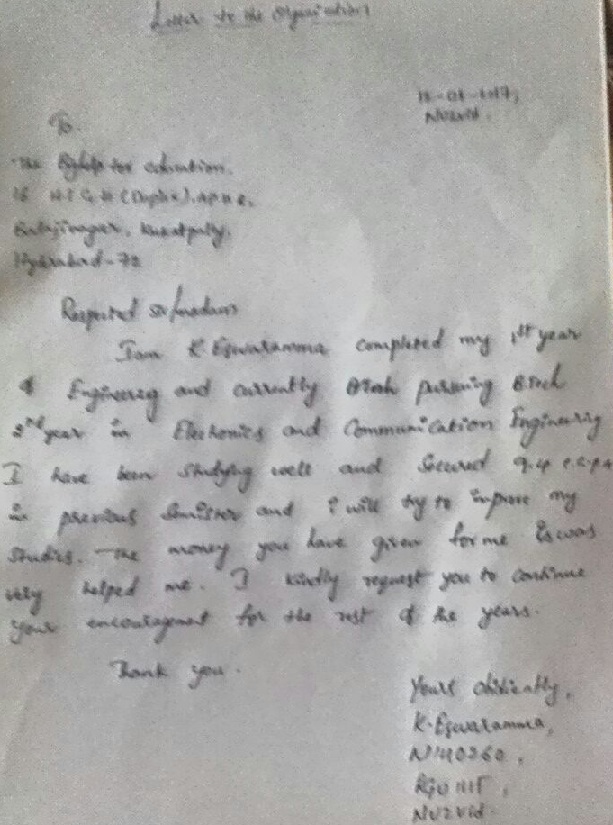 Letter to the Organisation
Nuzvid.
To
The Rights for education.
Balajinagar, Kukatpally,
Hyderabad-72
Respected sir/madam
I am K. Eswaramma completed my 1st year
of Engineering and currently pursuing B.Tech
2nd year in Electronics and Communication Engineering
I have been studying well and secured
in previous Semister and i will try to improve my
studies. The money you have given for me is was
very helped me. I kindly request you to continue
your encouragement for the rest of the years.
Thank you.
Yours obidiently,
K. Eswaramma,
N140260,
RGUIIIT,
Nuzvid.